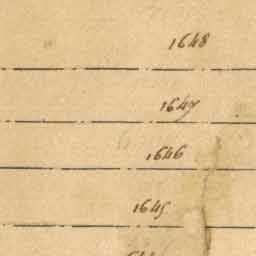 1648
1647
1646
1645